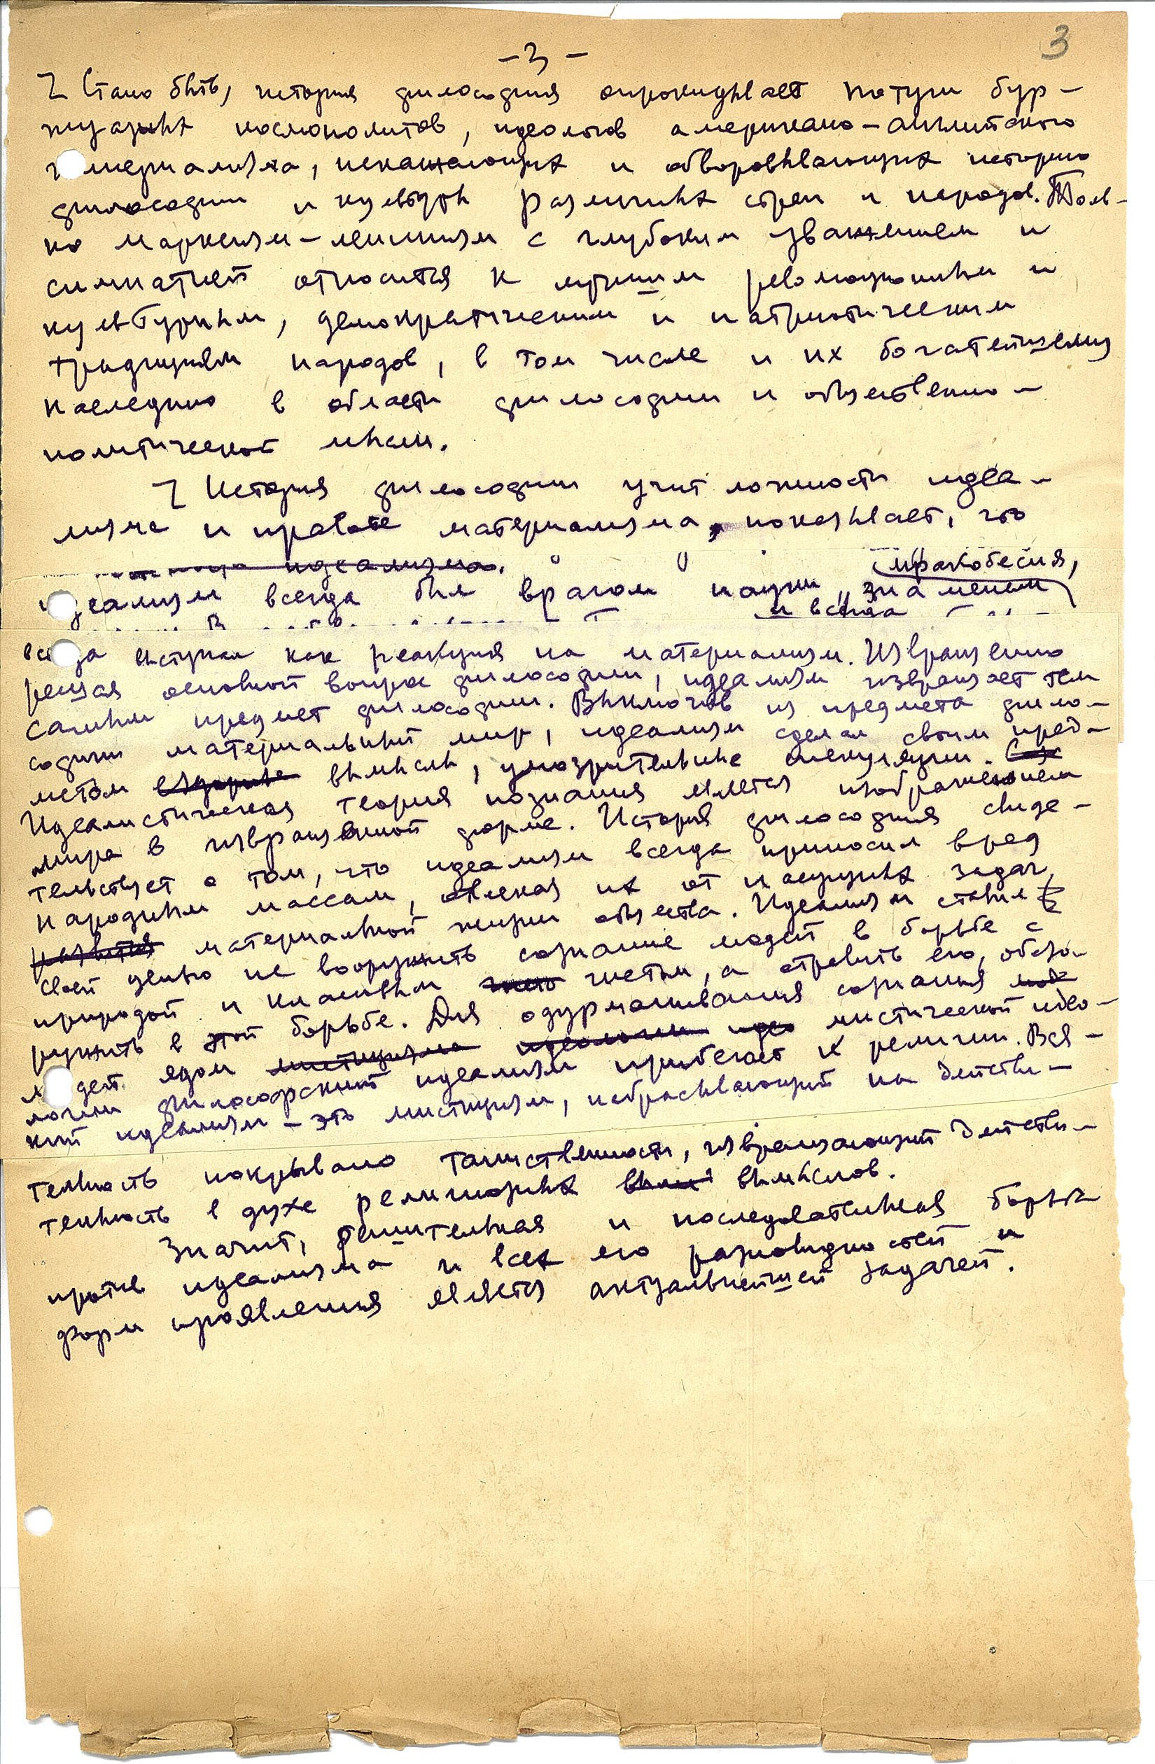 -3-
3
Стало быть, история философия опрокидывает потуги бур-
жуазных космополитов, идеологов американо-английского
империализма, искажающих и обворовывающих историю
философии и культуры различных стран и народов. Толь-
ко марксизм-ленинизм с глубоким уважением и
симпатией относится к лучшим революционным и
культурным, демократическим и патриотическим
традициям народов, в том числе и их богатейшему
наследию в области философии и общественно-
политической мысли.
История философии учит ложности идеа-
лизма и правоте материализма, показывает, что
идеализма.
мракобесия,
идеализм всегда был врагом науки, знаменем
и всегда
всегда выступал как реакция на материализм. Извращенно
решая основной вопрос философии, идеализм извращает тем
самым предмет философии. Выключив из предмета фило-
софии материальный мир, идеализм сделал своим пред-
метом вымыслы, умозрительные спекуляции.
Идеалистическая теория познания является изображением
мира в извращенной форме. История философия свиде-
тельствует о том, что идеализм всегда приносил вред
народным массам, отвлекая их от насущных задач
развития материальной жизни общества. Идеализм ставил
своей целью не вооружить сознание людей в борьбе с
природой и классовым гнетом, а отравить его, обезо-
ружить в этой борьбе. Для одурманивания сознания
людей ядом мистицизма идеологии идео мистической идео-
логии философский идеализм прибегает к религии. Вся-
кий идеализм - это мистицизм, набрасывающий на действи-
тельность покрывало таинственности, извращающий действи-
тельность в духе религиозных вымыслов.
Значит, решительная и последовательная борьба
против идеализма и всех его разновидностей и
форм проявления является актуальнейшей задачей.